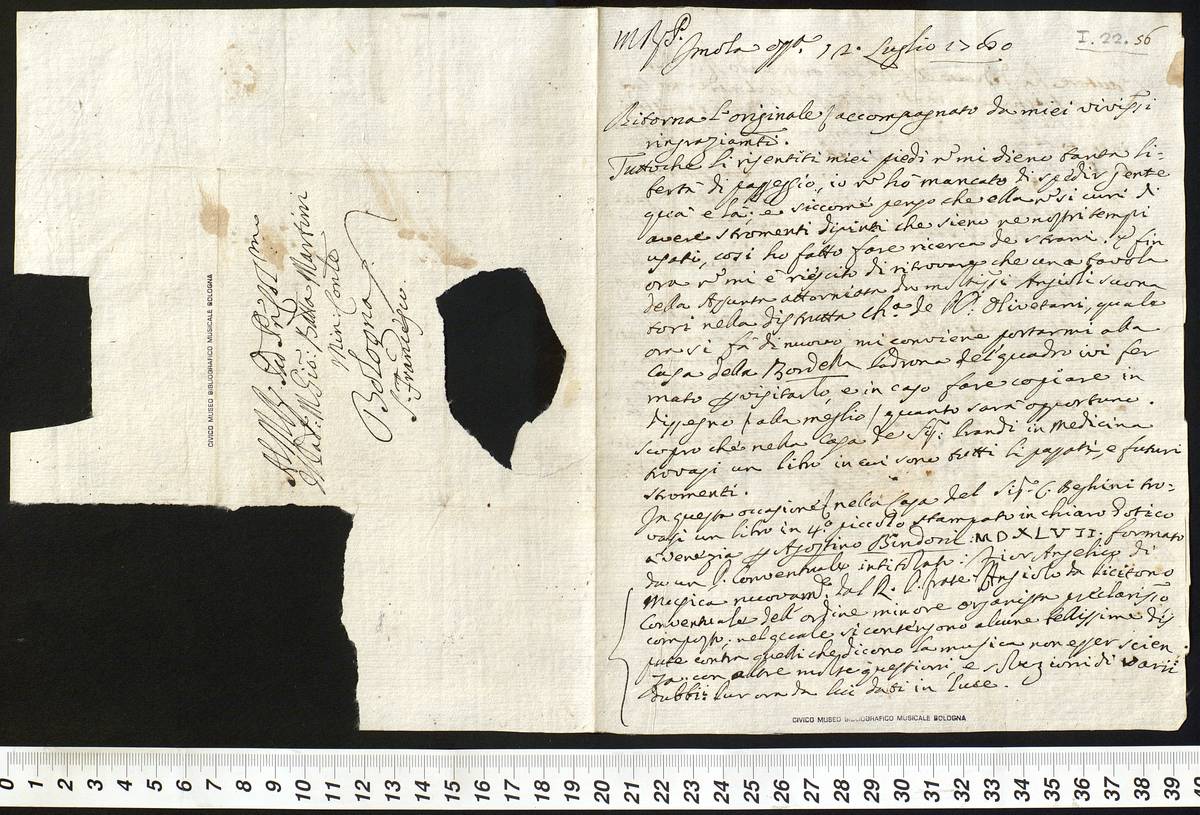 M. R. P.
Imola oggi 12. Luglio 1760
I. 22. 56
Ritorna l'originale accompagnato da miei vivissi
ringraziamti.
Tuttoche li risentiti miei piedi nō mi dieno tanta li-
bertà di passeggio, io nō hò mancato di spedir gente
quà e là; e siccome penso che ella nō si curi di
avere stromenti dipinti che sieno ne nostri tempi
usati, così hò fatto fare ricerca de strani. e fin
ora nō mi è riescito di ritrovare che una tavola
della Assunta attorniata da moltissi Angioli suona
tori nella distrutta cha de PP. Olivetani, quale
ora si fà di nuovo mi conviene portarmi alla
Casa della Bordella Padrona del quadro ivi fer
mato p visitarlo, e in caso fare copiare in
dissegno (alla meglio) quanto sarà opportuno.
Scopro che nella Casa de Sigri: Brandi in Medicina
trovasi un libro in cui sono tutti li passati, e futuri
stromenti.
In questa occasione nella Casa del Sigr. C. Beghini tro-
vasi un libro in 4º piccolo stampato in chiaro dotico
a Venezia p Agostino Bindoni: MDXLVII: formato
da un P. Conventuale intitolato: Fior Angelico di
Musica nuovamte. dal R. P. frate Angiolo da Picitono
Conventuale dell'ordine minore organista preclarisso
composto. nel quale si contengono alcune bellissime dis
pute contra quelli che dicono la musica non esser scien
za: con altre molte questioni e soluzioni di varii
dubbi: pur ora da lui dati in luce.
CIVICO MUSEO BIBLIOGRAFICO MUSICALE BOLOGNA
Al M. R. Pad. Pne
Il Pad: M. Gio: Batta Martini
Min: Conle
Bologna
S. Francesco.
CIVICO MUSEO BIBLIOGRAFICO MUSICALE BOLOGNA
0 1 2 3 4 5 6 7 8 9 10 11 12 13 14 15 16 17 18 19 20 21 22 23 24 25 26 27 28 29 30 31 32 33 34 35 36 37 38 39 40